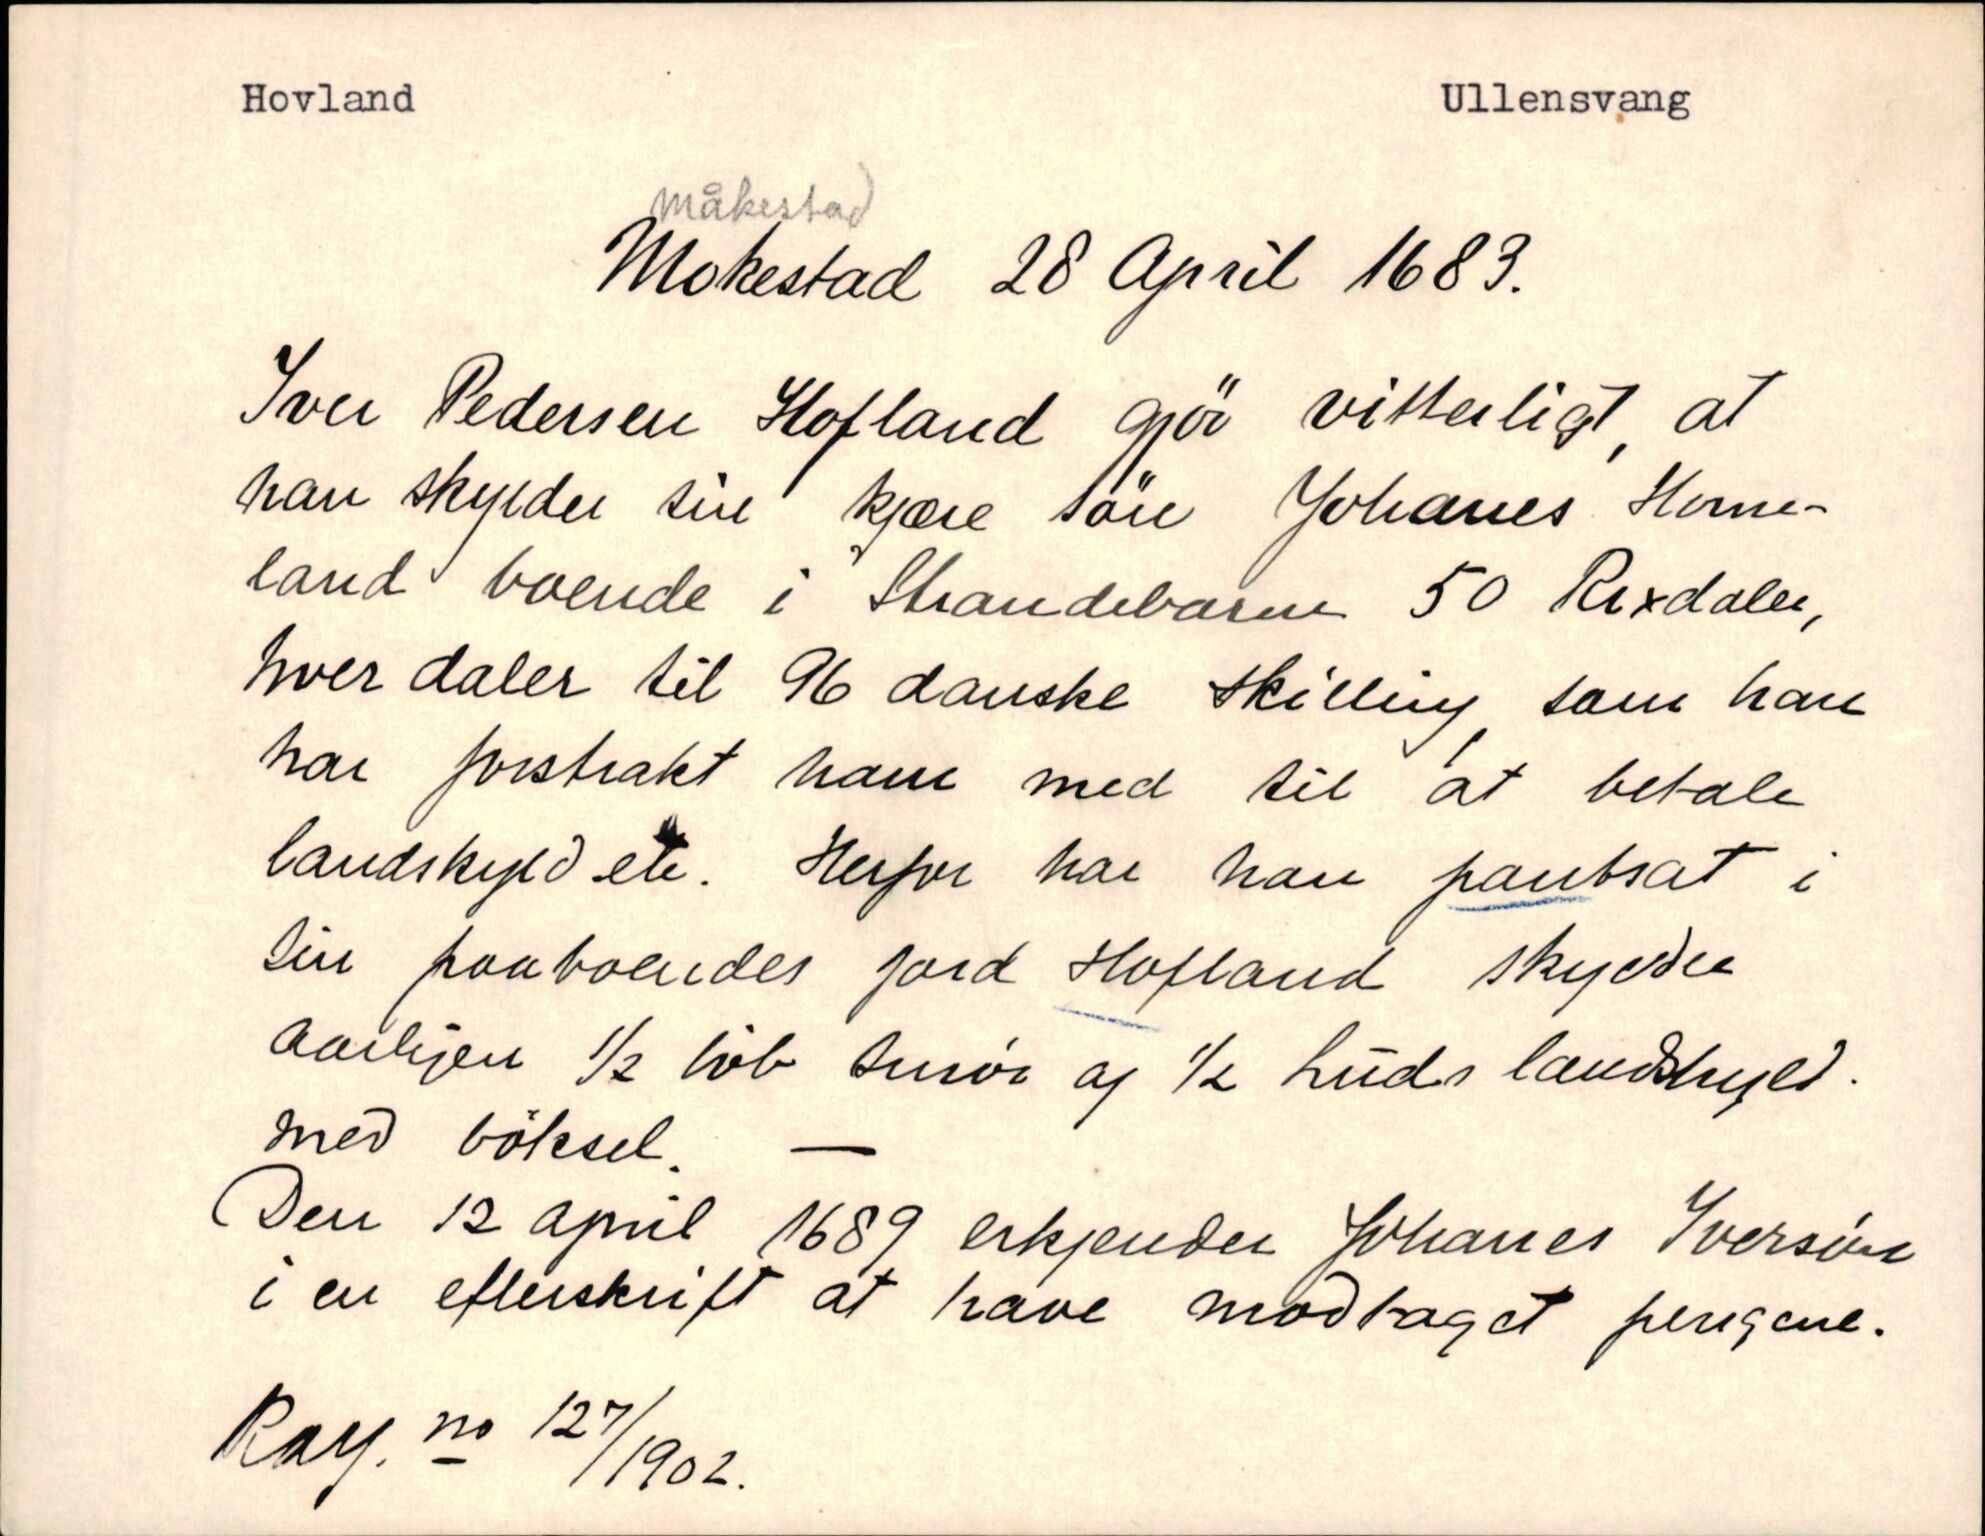 Hovland Ullensvang
Måkestad
Mokestad 28 April 1683.
Iver Pedersen Hofland gjör vitterligt, at
han skylder sin kjære sön Johanes Home-
land boende i Strandebarm 50 Rixdaler,
hver daler til 96 danske skilling, som han
har forstrakt ham med til at betale
landskyld etc. Herfor har han pantsat i
sin paaboendes jord Hofland skylder
aarligen 1/2 löb smör og 1/2 huds landskyld.
med böksel. —
Den 12 april 1689 erkjender Johanes Iversön
i en efterskrift at have modtaget pengene.
RAy. no 127/1902.